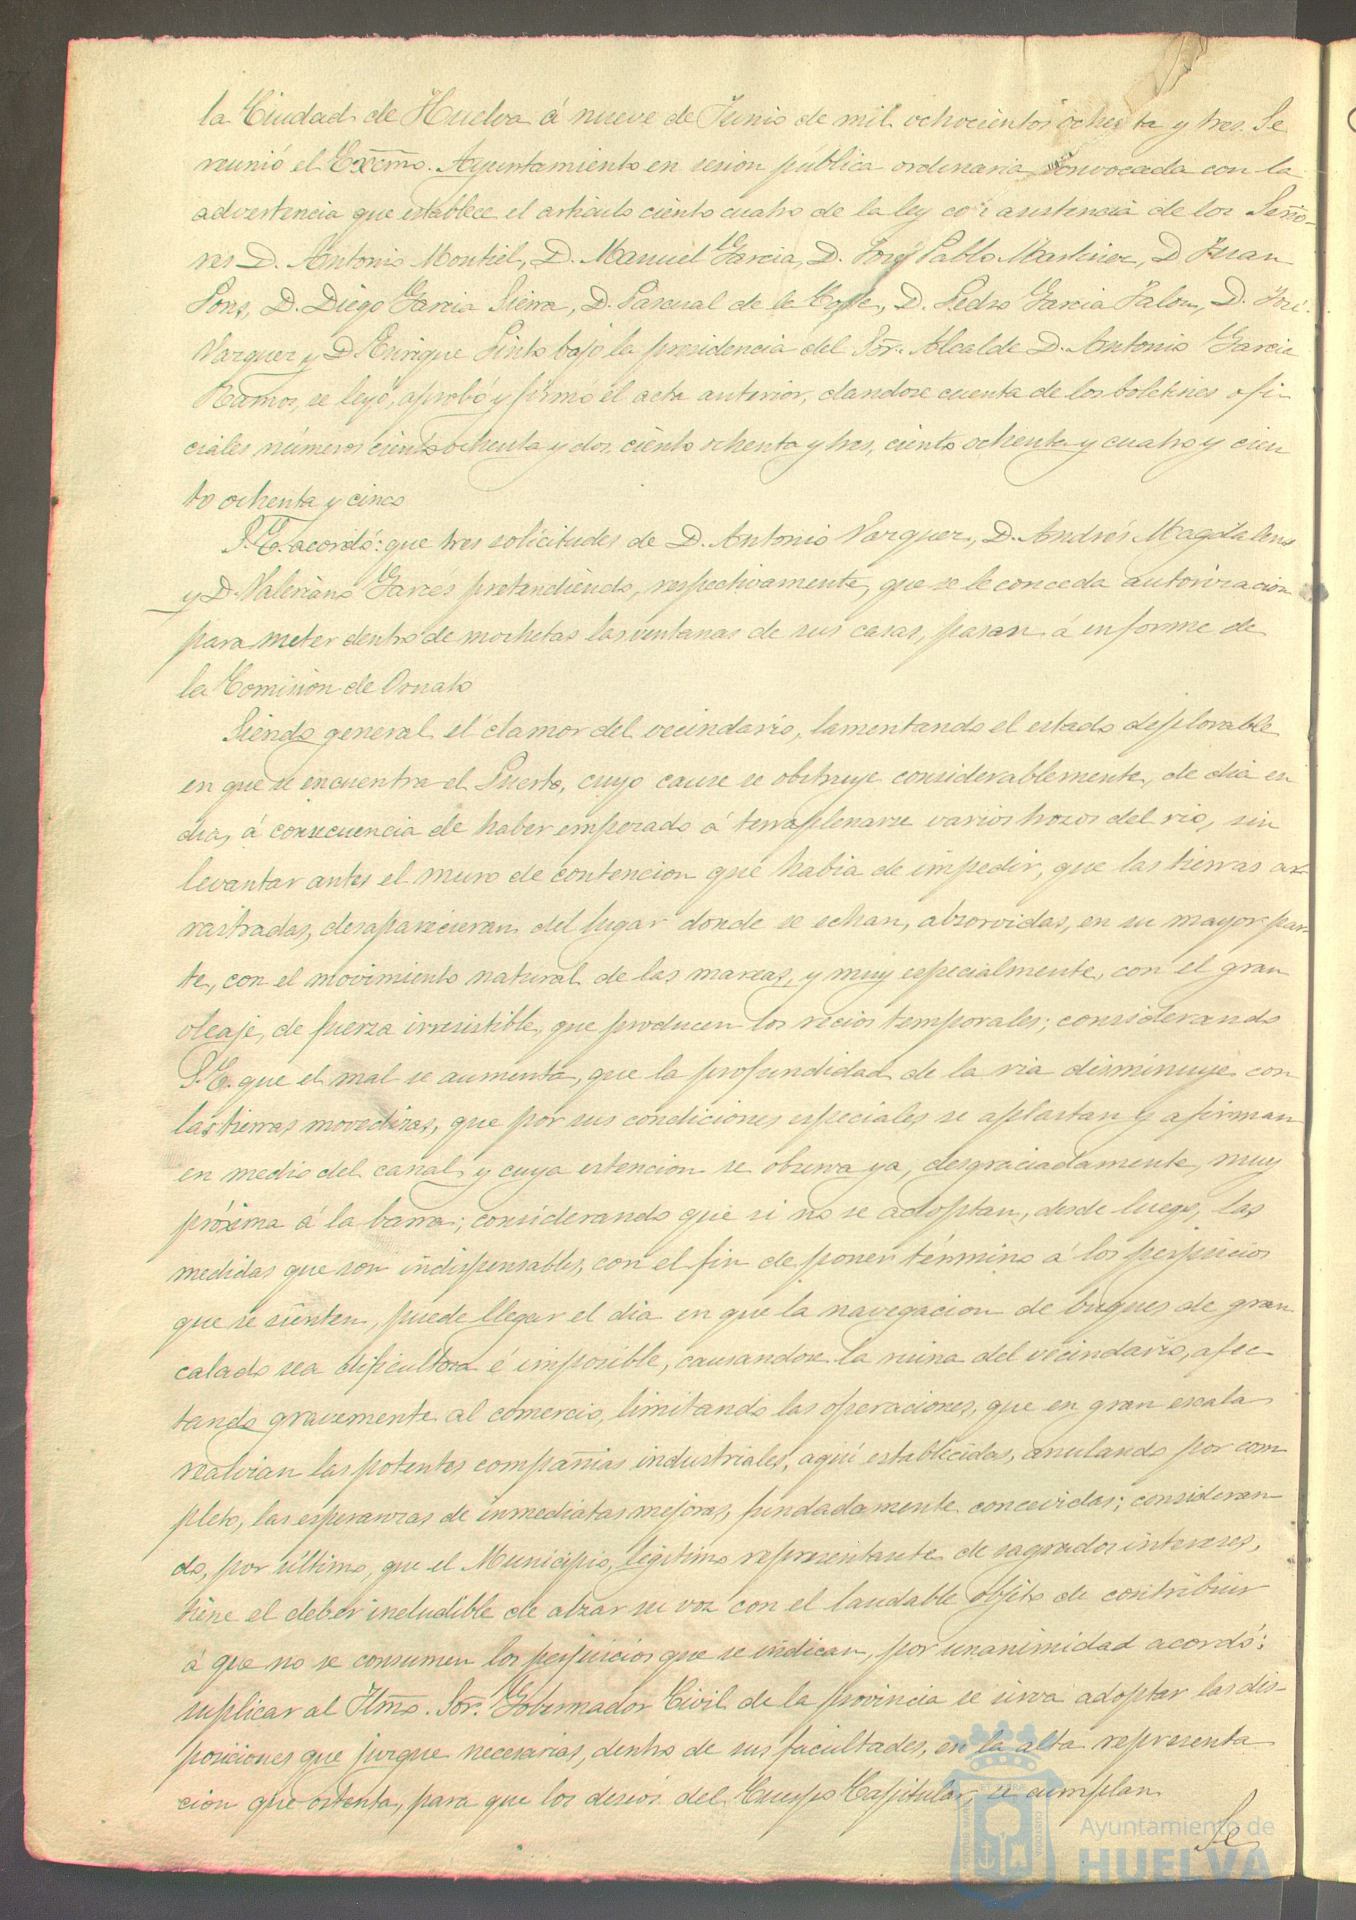 la Ciudad de Huelva á nueve de Junio de mil ochocientos ochenta y tres. Se
reunió el Excmo. Ayuntamiento en sesion pública ordinaria convocada con la
advertencia que establece el articulo ciento cuatro de la ley con asistencia de los Seño-
res D. Antonio Montiel, D. Manuel Garcia, D. José Pablo Martinez, D Juan
Pons, D. Diego Garcia Sierra, D. Pascual de la Corte, D. Pedro Garcia Jalon, D. José
Vazquez y D Enrique Pinto bajo la presidencia del Sor. Alcalde D. Antonio Garcia
Ramos, se leyó, aprobó y firmó el acta anterior, dandose cuenta de los boletines ofi-
ciales números ciento ochenta y dos, ciento ochenta y tres, ciento ochenta y cuatro y cien
to ochenta y cinco
S. E. acordó: que tres solicitudes de D. Antonio Vazquez, D. Andrés Magdaleno
y D. Valeriano Garcés pretendiendo, respectivamente, que se le conceda autorizacion
para meter dentro de mochetas las ventanas de sus casas, pasan á informe de
la Comision de Ornato
Siendo general el clamor del vecindario, lamentando el estado deplorable
en que se encuentra el Puerto, cuyo cauce se obstruye considerablemente, de dia en
dia, á consecuencia de haber empezado á terraplenarse varios trozos del rio, sin
levantar antes el muro de contencion que habia de impedir, que las tierras ar-
rastradas, desaparecieran del lugar donde se echan, absorvidas, en su mayor par-
te, con el movimiento natural de las mareas, y muy especialmente, con el gran
oleaje, de fuerza irresistible, que producen los recios temporales; considerando
S. E. que el mal se aumenta, que la profundidad de la ria disminuye con
las tierras movedizas, que por sus condiciones especiales se aplastan y afirman
en medio del canal y cuya estencion se observa ya, desgraciadamente, muy
próxima á la barra; considerando que si no se adoptan, desde luego, las
medidas que son indispensables, con el fin de poner término á los perjuicios
que se sienten, puede llegar el dia en que la navegacion de buques de gran
calado sea dificultosa é imposible, causandose la ruina del vecindario, afec-
tando gravemente al comercio, limitando las operaciones, que en gran escala
realizan las potentes compañias industriales, aquí establecidas, anulando por com
pleto, las esperanzas de inmediatas mejoras, fundadamente concevidas; consideran-
do, por último, que el Municipio, legitimo representante de sagrados intereses,
tiene el deber ineludible de alzar su voz con el laudable objeto de contribuir
á que no se consumen los perjuicios que se indican, por unanimidad acordó:
suplicar al Iltmo. Sor. Gobernador Civil de la provincia se sirva adoptar las dis-
posiciones que juzgue necesarias, dentro de sus facultades, en la alta representa
cion que ostenta, para que los deseos del Cuerpo Capitular se cumplan
Se
Ayuntamiento de
HUELVA